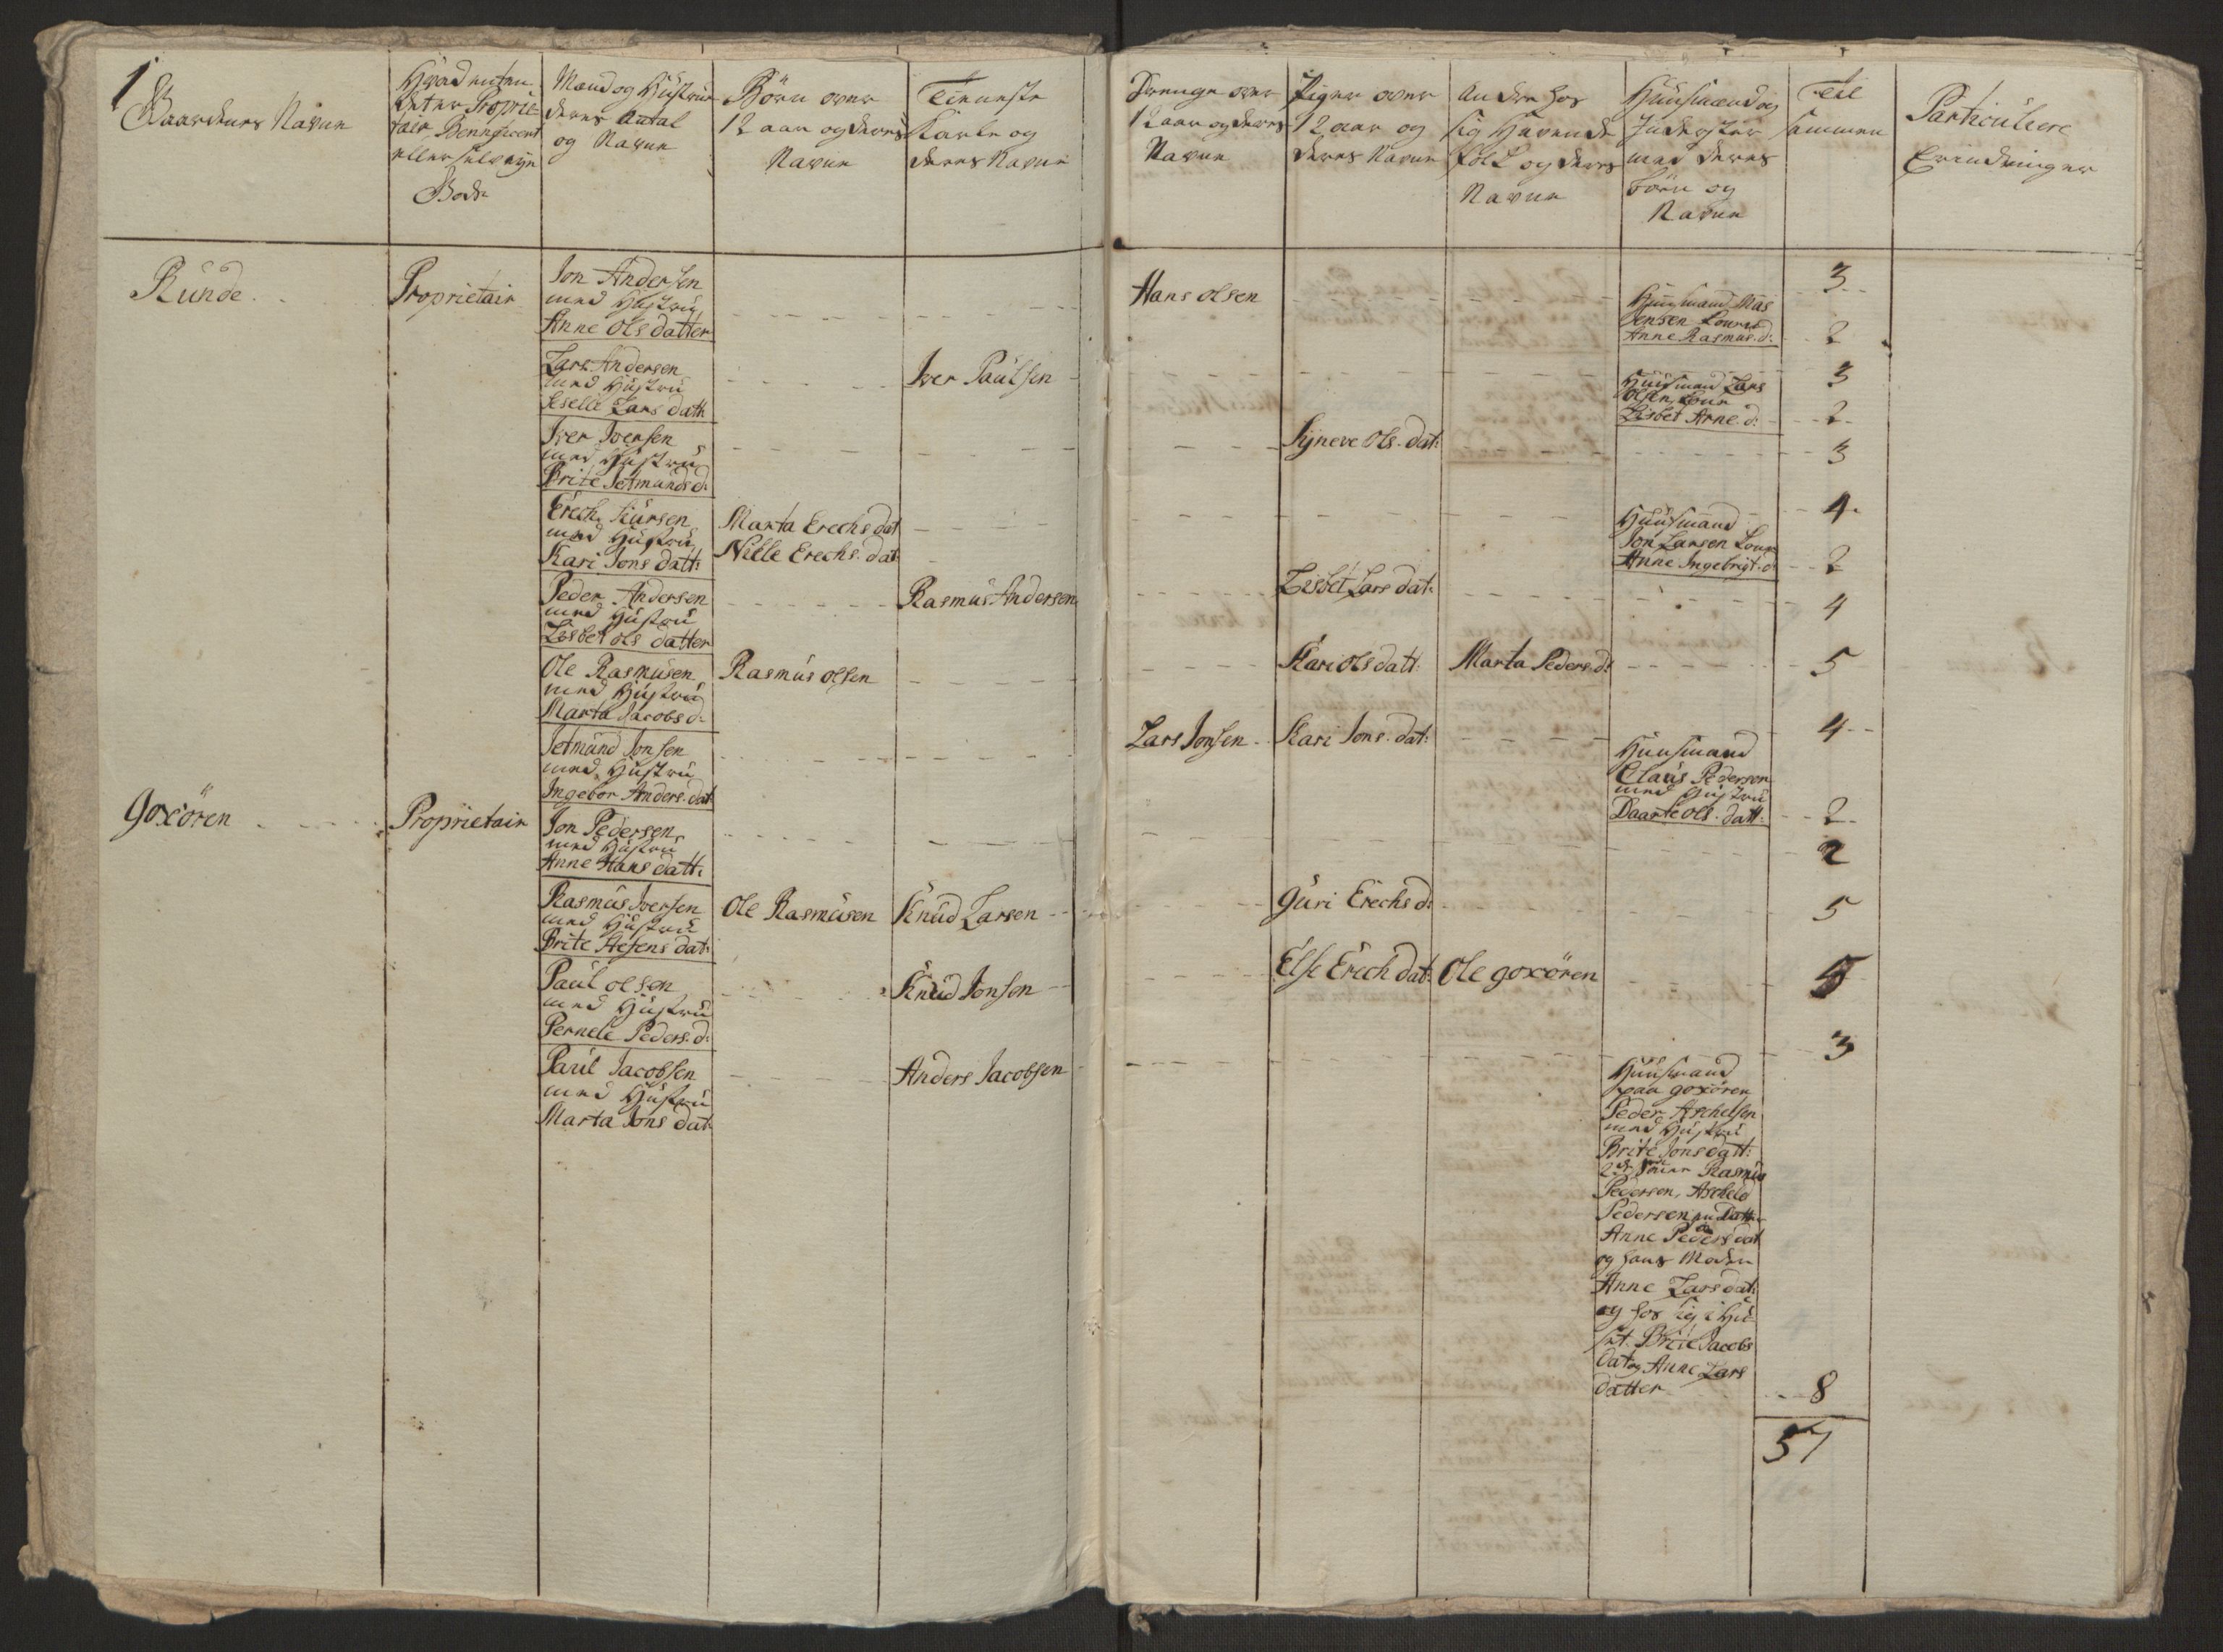 1
Gaardenes Navne
Hvad enten
det er Proprie-
tair Beneficeret
eller selv eye
Bode
Mænd og Hustruer
deres Antal
og Navne
Börn over
12 aar og deres
Navne
Tieneste
Karle og
deres Navne
Drenge over
12 aar og deres
Navne
Piger over
12 aar og
deres Navne
Andre hos
sig Havende
folk og deres
Navne
Huusmænd og
Inderster
med deres
börn og
Navne
Til
sammen
Particulere
Erindringer
Runde
Proprietair
Jon Andersen
med Hustru
Anne Olsdatter
Hans Olsen
3
Huusmand Mas
Jensen Kone
Anne Rasmus d:
2
Lars Andersen
med Hustru
Seselle Lars dath
Iver Paulsen
3
Huusmand Lars
Olsen, Kone
Lisbet Arne d:
2
Iver Iversen
med Hustru
Brite Jetmunds d:
Syneve Ols dat:
3
Erech Siursen
med Hustru
Kari Jons datt:
Marta Erechs dat
Nille Erechs dat
4
Huusmand
Jon Larsen Kone
Anne Ingebrigt d:
2
Peder Andersen
med Hustru
Lisbet Ols datter
Rasmus Andersen
Lisbet Lars dat:
4
Ole Rasmusen
med Hustru
Marta Jacobs d:
Rasmus Olsen
Kari Ols datt:
Marta Peders d:
5
Jetmund Jonsen
med Hustru
Ingebor Anders dat
Lars Jonsen
Kari Jons dat:
4
Huusmand
Claus Pedersen
med Hustru
Daarte Ols datt:
2
Goxören
Proprietair
Jon Pedersen
med Hustru
Anne Hans datt:
2
Rasmus Iversen
med Hustru
Brite Stefens dat:
Ole Rasmusen
Knud Larsen
Guri Erechs d:
5
Paul Olsen
med Hustru
Pernele Peders d:
Knud Jonsen
Else Erech dat:
Ole Goxören
5
Paul Jacobsen
med Hustru
Marta Jons dat
Anders Jacobsen
3
Huusmand
paa Goxören
Peder Aschelsen
med Hustru
Brite Jons datt:
2de Sönner Rasmus
Pedersen, Ascheld
Pedersen en Datter
Anne Peders dat
og hans Moder
Anne Lars dat:
og hos sig i Hu
set Brite Jacobs
dat og Anne Lars
datter
8
57